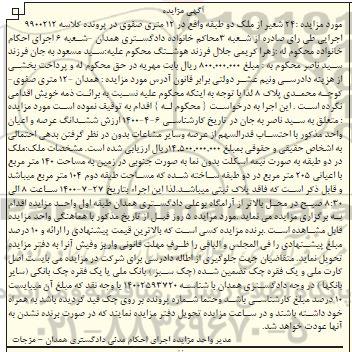 آگهی مزایده
مورد مزایده :۲۴ شعیر از ملک دو طبقه واقع در ۱۲ متری صفوی در پرونده کلاسه ۹۹۰۰۲۱۲
اجرایی طی رای صادره از شعبه ۳محاکم خانواده دادگستری همدان –شعبه ۶ اجرای احکام
خانواده محکوم له :زهرا کریمی جلال فرزند هوشنگ محکوم علیه:سید مسعود به جان فرزند
سید ناصر محکوم به : مبلغ ۸۰۰.۰۰۰.۰۰۰ ریال بابت مهریه در حق محکوم له و پرداخت بخشی
از هزینه دادرسی ونیم عشر دولتی برابر قانون آدرس مورد مزایده : همدان -۱۲ متری صفوی –
کوچه محمدی پلاک ۸ لذا با توجه به اینکه محکوم علیه نسبت به برائت ذمه خویش اقدامی
نکرده است . این اجرا به درخواست { محکوم له } اقدام به توقیف نموده است مورد مزایده
: متعلق به سید ناصر به جان در تاریخ کارشناسی ۶-۴-۱۴۰۰ ارزش ششدانگ عرصه و اعیان
واحد مذکور با احتساب قدرالسهم از عرصه وسایر مشاعات بدون در نظر گرفتن بدهی احتمالی
به اشخاص حقیقی و حقوقی بمبلغ ۱۴.۵۰۰.۰۰۰.۰۰۰ریال ارزیابی شده است. مشخصات ملک:ملک
در دو طبقه به صورت نیمه اسکلت بدون نما به صورت جنوبی در زمین به مساحت ۱۴۰ متر مربع
با اعیانی ۲۰۵ متر مربع در دو طبقه ساخته شده که مساحت طبقه دوم ۱۰۴ متر مربع میباشد
و قابل ذکر است که فاقد پلاک ثبتی میباشد.لذا این اجرا بتاریخ ۲۷-۷-۱۴۰۰ ساعت ۸ الی
۸:۳۰ صبح در محل بالاتر از آرامگاه بوعلی دادگستری همدان طبقه اول واحد مزایده اقدام
به برگزاری مزایده می نماید .مورد مزایده ۵ روز قبل از تاریخ مذکور با هماهنگی واحد مزایده
قابل مشاهده است .برنده مزایده کسی است که بالاترین قیمت پیشنهادی را ارائه و ۱۰ درصد
مبلغ پیشنهادی را فی المجلس و الباقی را ظرف مهلت قانونی واریز وفیش آنرا به دفتر مزایده
تحویل نماید. متقاضیان جهت جلوگیری از اطاله دادرسی برای شرکت در مزایده می بایست اصل
کارت ملی و یک فقره چک تضمین شده (چک سبز) بانک ملی یا یک فقره چک بانکی (سایر
بانکها) در وجه دادگستری همدان با شناسه ۱۴۰۰۲۵۹۳۷۲۰ یا وجه نقد که مبلغ آن میبایست
۱۰ درصد مبلغ کارشناسی باشد وحتما شماره پرونده بر روی چک قید گردیده باشد به همراه
خود داشته باشند و در ساعت مزایده تحویل دفتر مزایده نمایند که در صورت برنده نشدن به
آنها عودت خواهد شد.
مدیر واحد مزایده اجرای احکام مدنی دادگستری همدان – مژجات